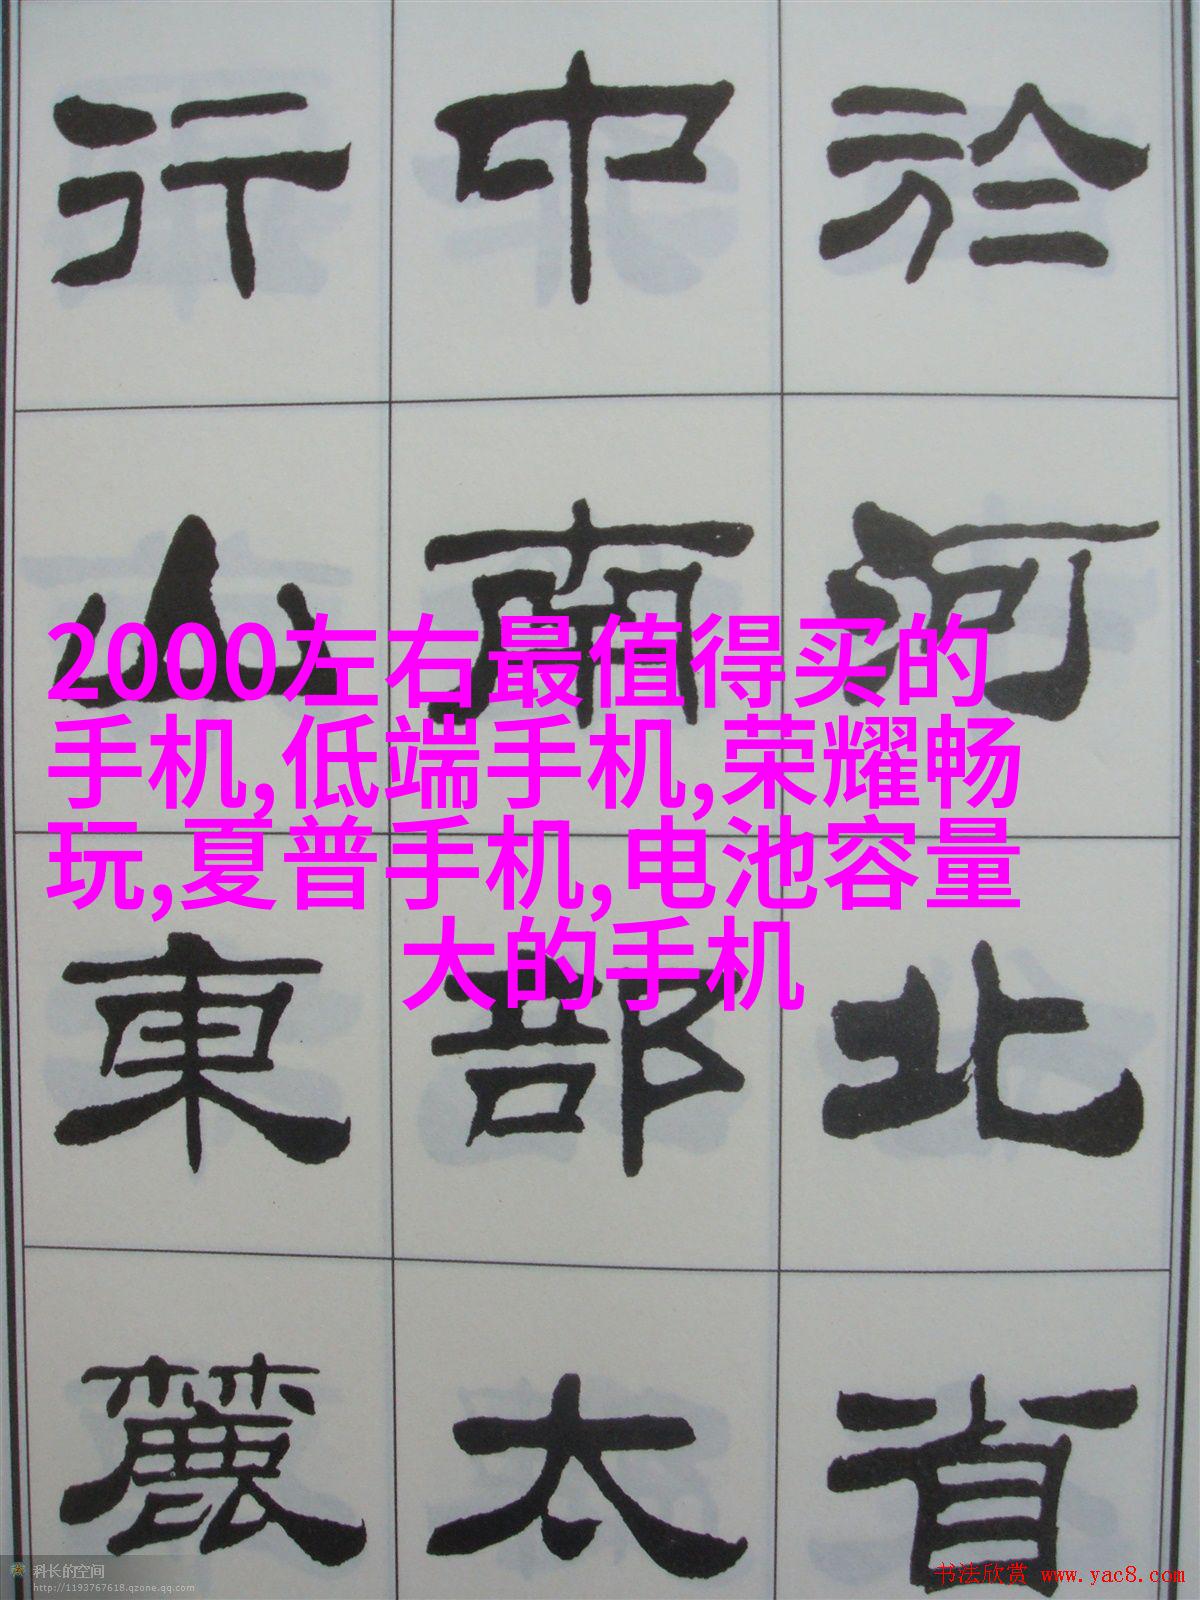 於河北省
中南部太
行山東麓
2000左右最值得买的
手机,低端手机,荣耀畅
玩,夏普手机,电池容量
大的手机
科长的空间
http://1193767618.qzone.qq.com
书法欣赏 www.yac8.com